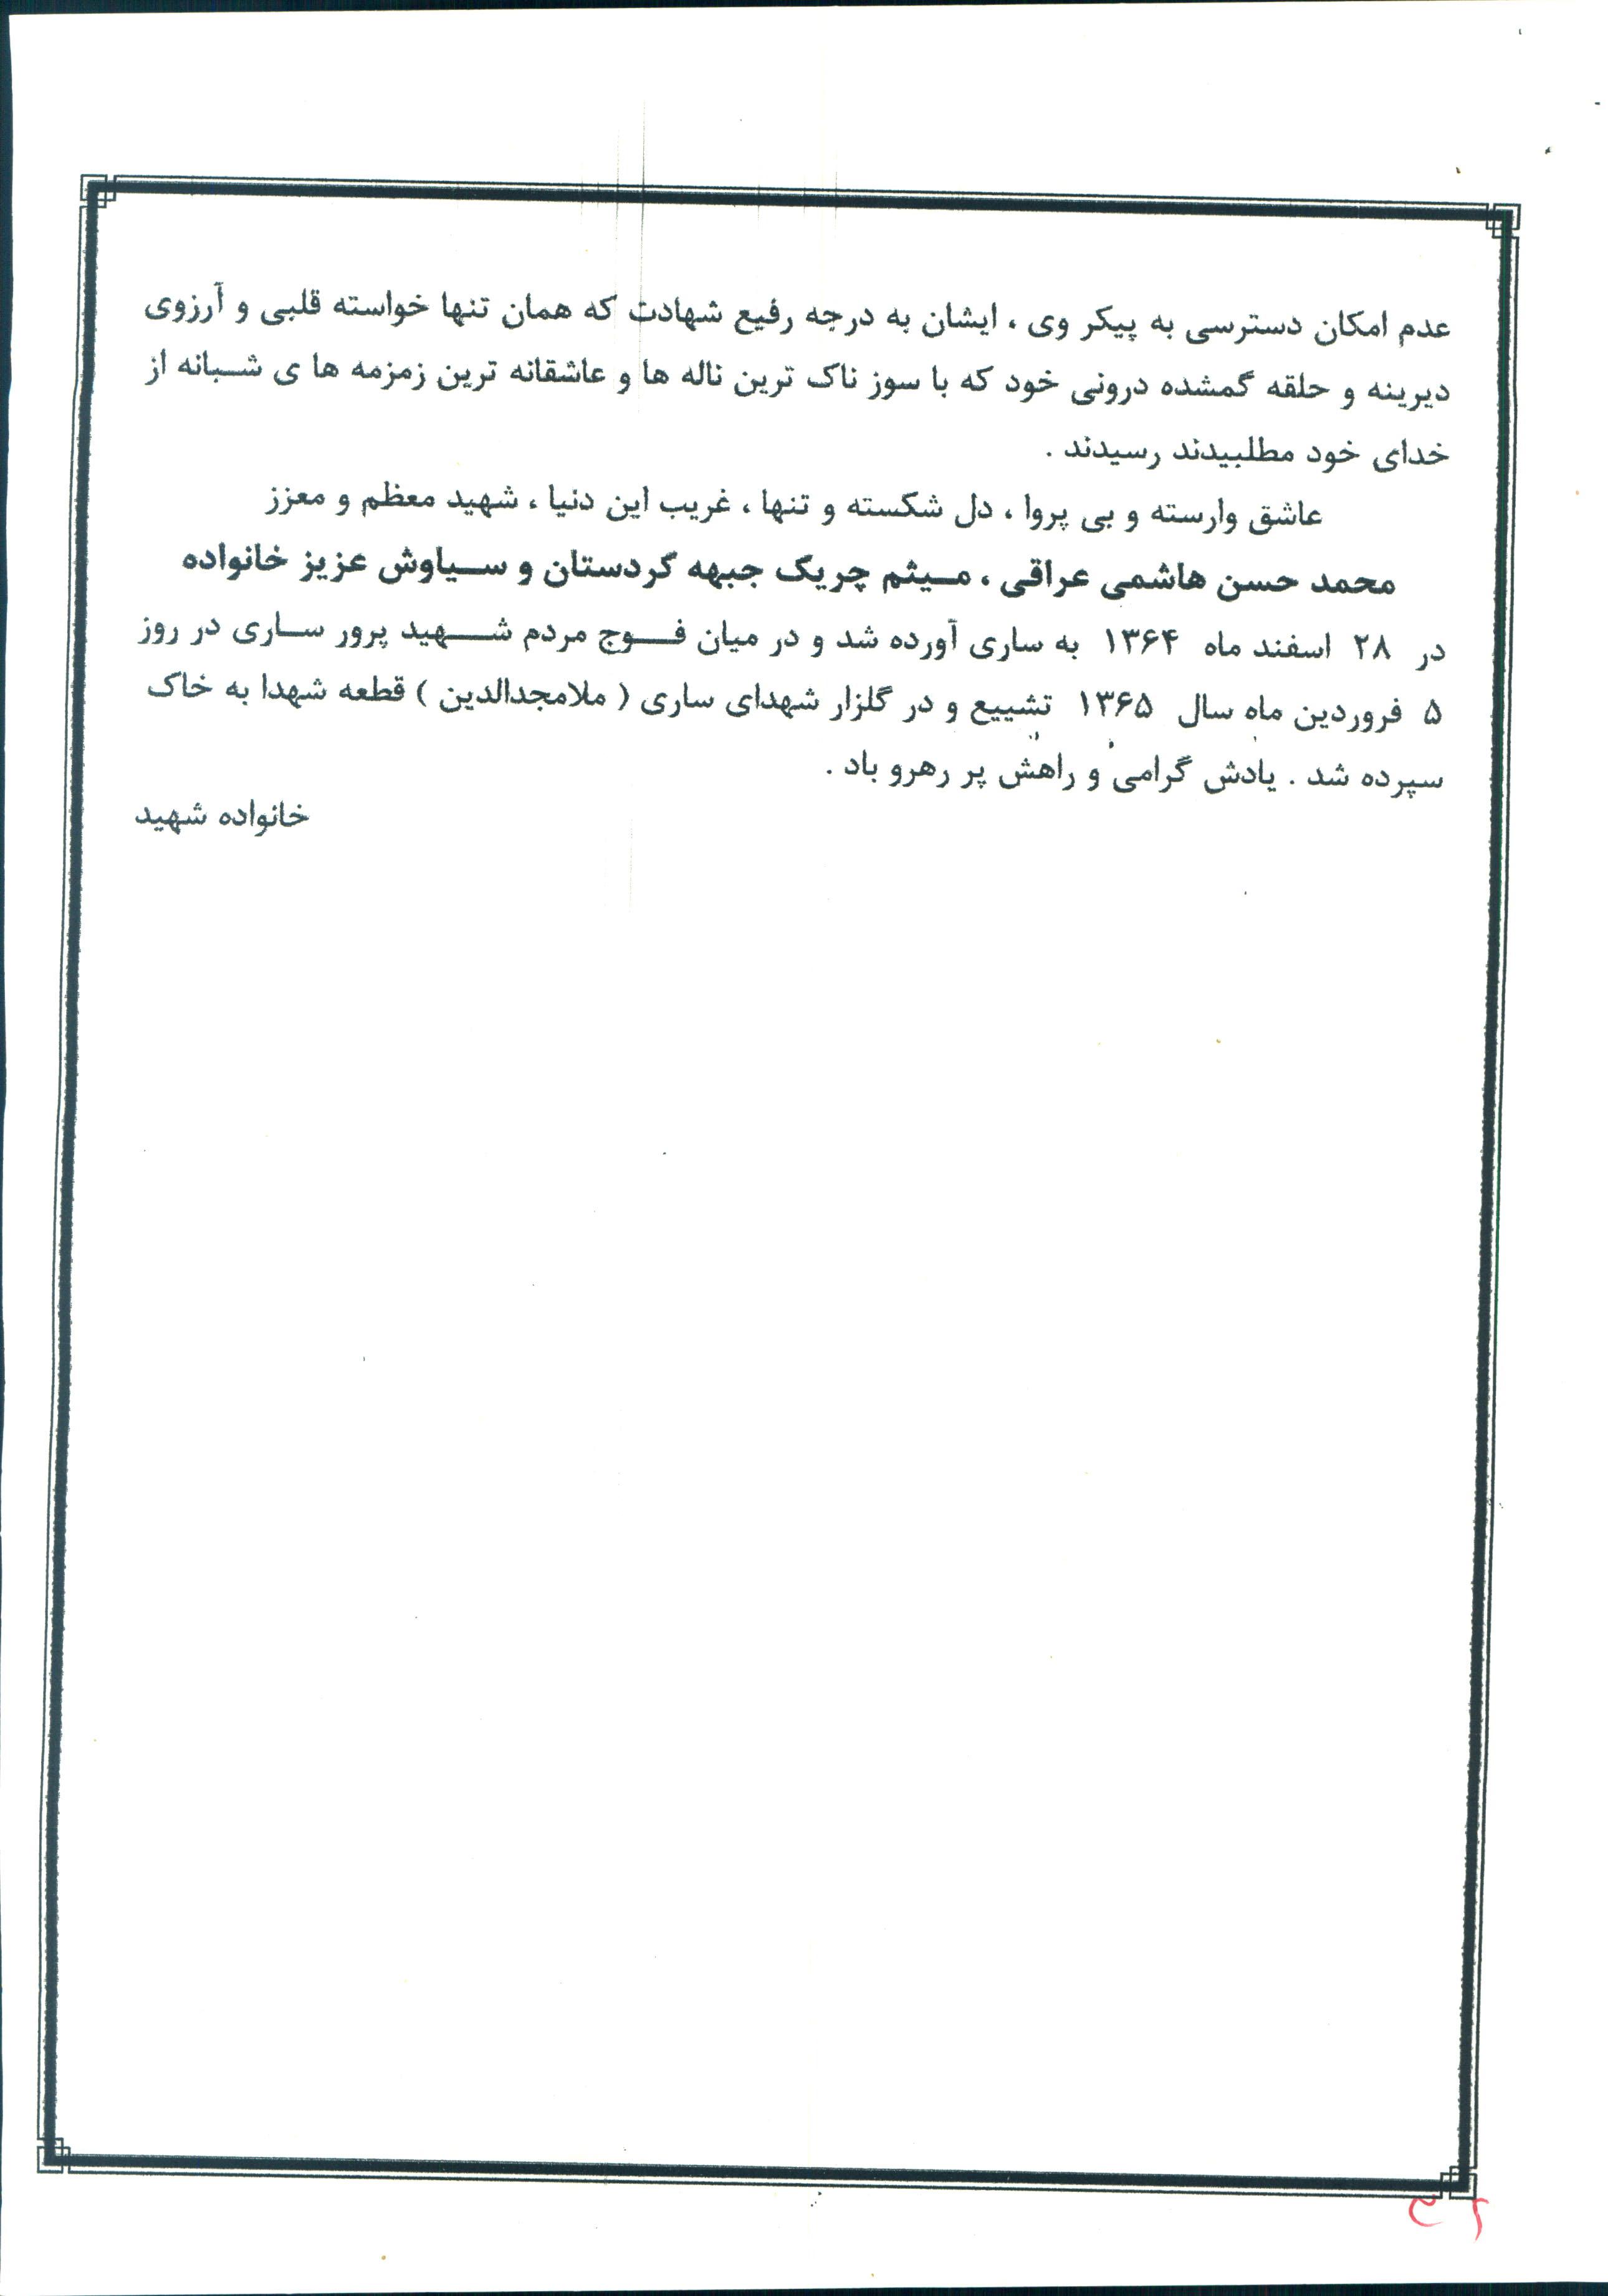 عدم امکان دسترسی به پیکر وی ، ایشان به درجه رفیع شهادت که همان تنها خواسته قلبی و آرزوی
دیرینه و حلقه گمشده درونی خود که با سوز ناک ترین ناله ها و عاشقانه ترین زمزمه ها ی شبانه از
خدای خود مطلبیدند رسیدند .
عاشق وارسته و بی پروا ، دل شکسته و تنها ، غریب این دنیا ، شهید معظم و معزز
محمد حسن هاشمی عراقی ، میثم چریک جبهه کردستان و سیاوش عزیز خانواده
در ۲۸ اسفند ماه ۱۳۶۴ به ساری آورده شد و در میان فوج مردم شهید پرور ساری در روز
۵ فروردین ماه سال ۱۳۶۵ تشییع و در گلزار شهدای ساری ( ملامجدالدین ) قطعه شهدا به خاک
سپرده شد . یادش گرامی و راهش پر رهرو باد .
خانواده شهید